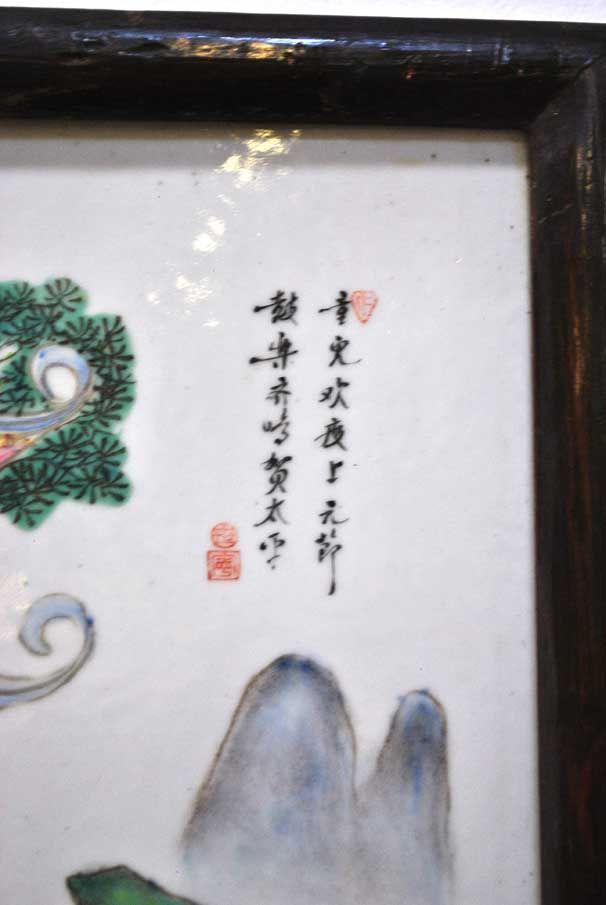 童兒欢度上元節
鼓乐齐鸣贺太平